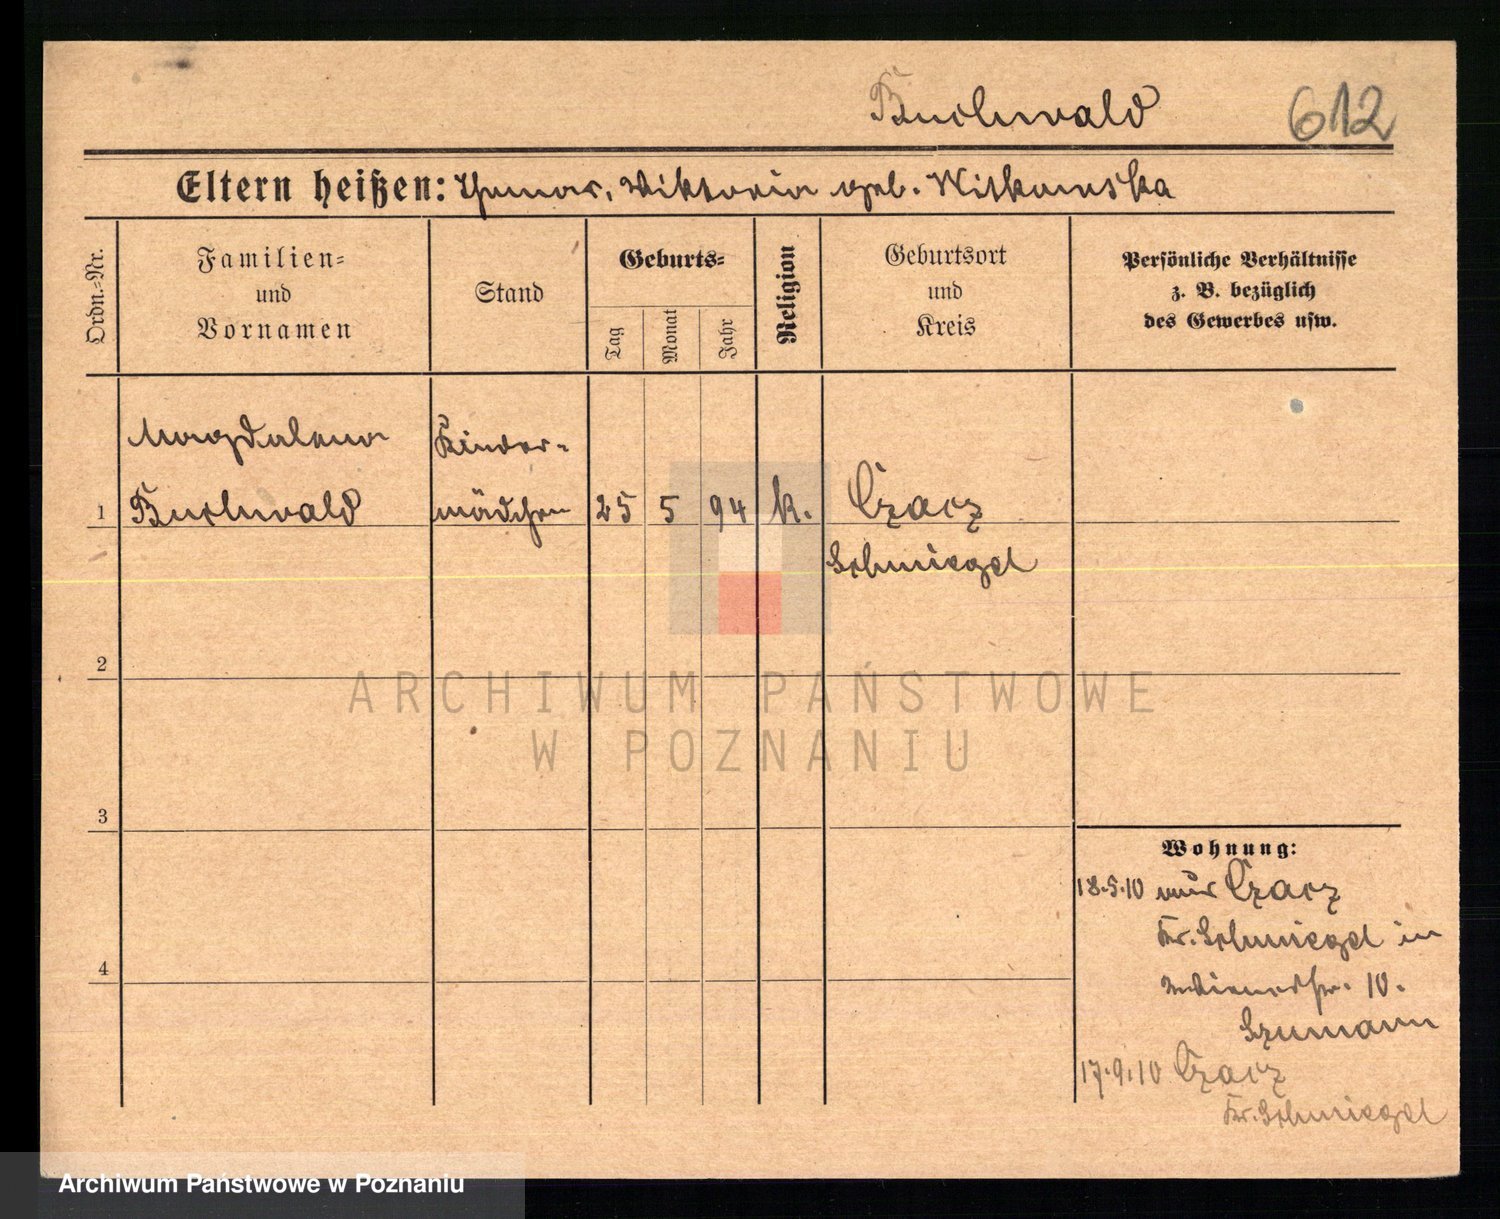 Buchwald
612
Eltern heißen: Thomas, Viktoria geb. Witkowska
Ordn.-Nr.
Familien-
und
Vornamen
Stand
Geburts-
Tag
Monat
Jahr
Religion
Geburtsort
und
Kreis
Persönliche Verhältnisse
z. B. bezüglich
des Gewerbes usw.
Magdalena
Kinder-
1 Buchwald mädchen 25 5 94 k. Czacz
Schmiegel
2
ARCHIWUM PAŃSTWOWE
W POZNANIU
3
Wohnung:
18.5.10 aus Czacz
Kr. Schmiegel in
4
Wienerstr. 10.
Szumann
17.9.10 Czacz
Kr. Schmiegel
Archiwum Państwowe w Poznaniu